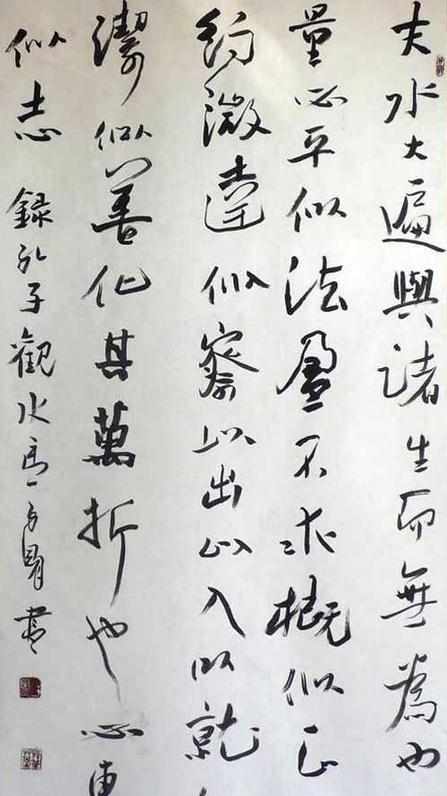 夫水大遍與諸生而無為也
量必平似法盈不求概似正
約微達似察以出以入以就
潔似善化其萬折也必東
似志 錄孔子觀水言 書